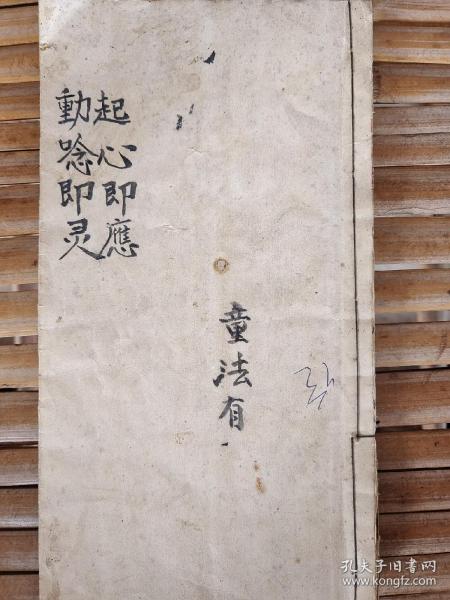 起心即應
動唸即灵
童法有
孔夫子旧书网
www.kongfz.com